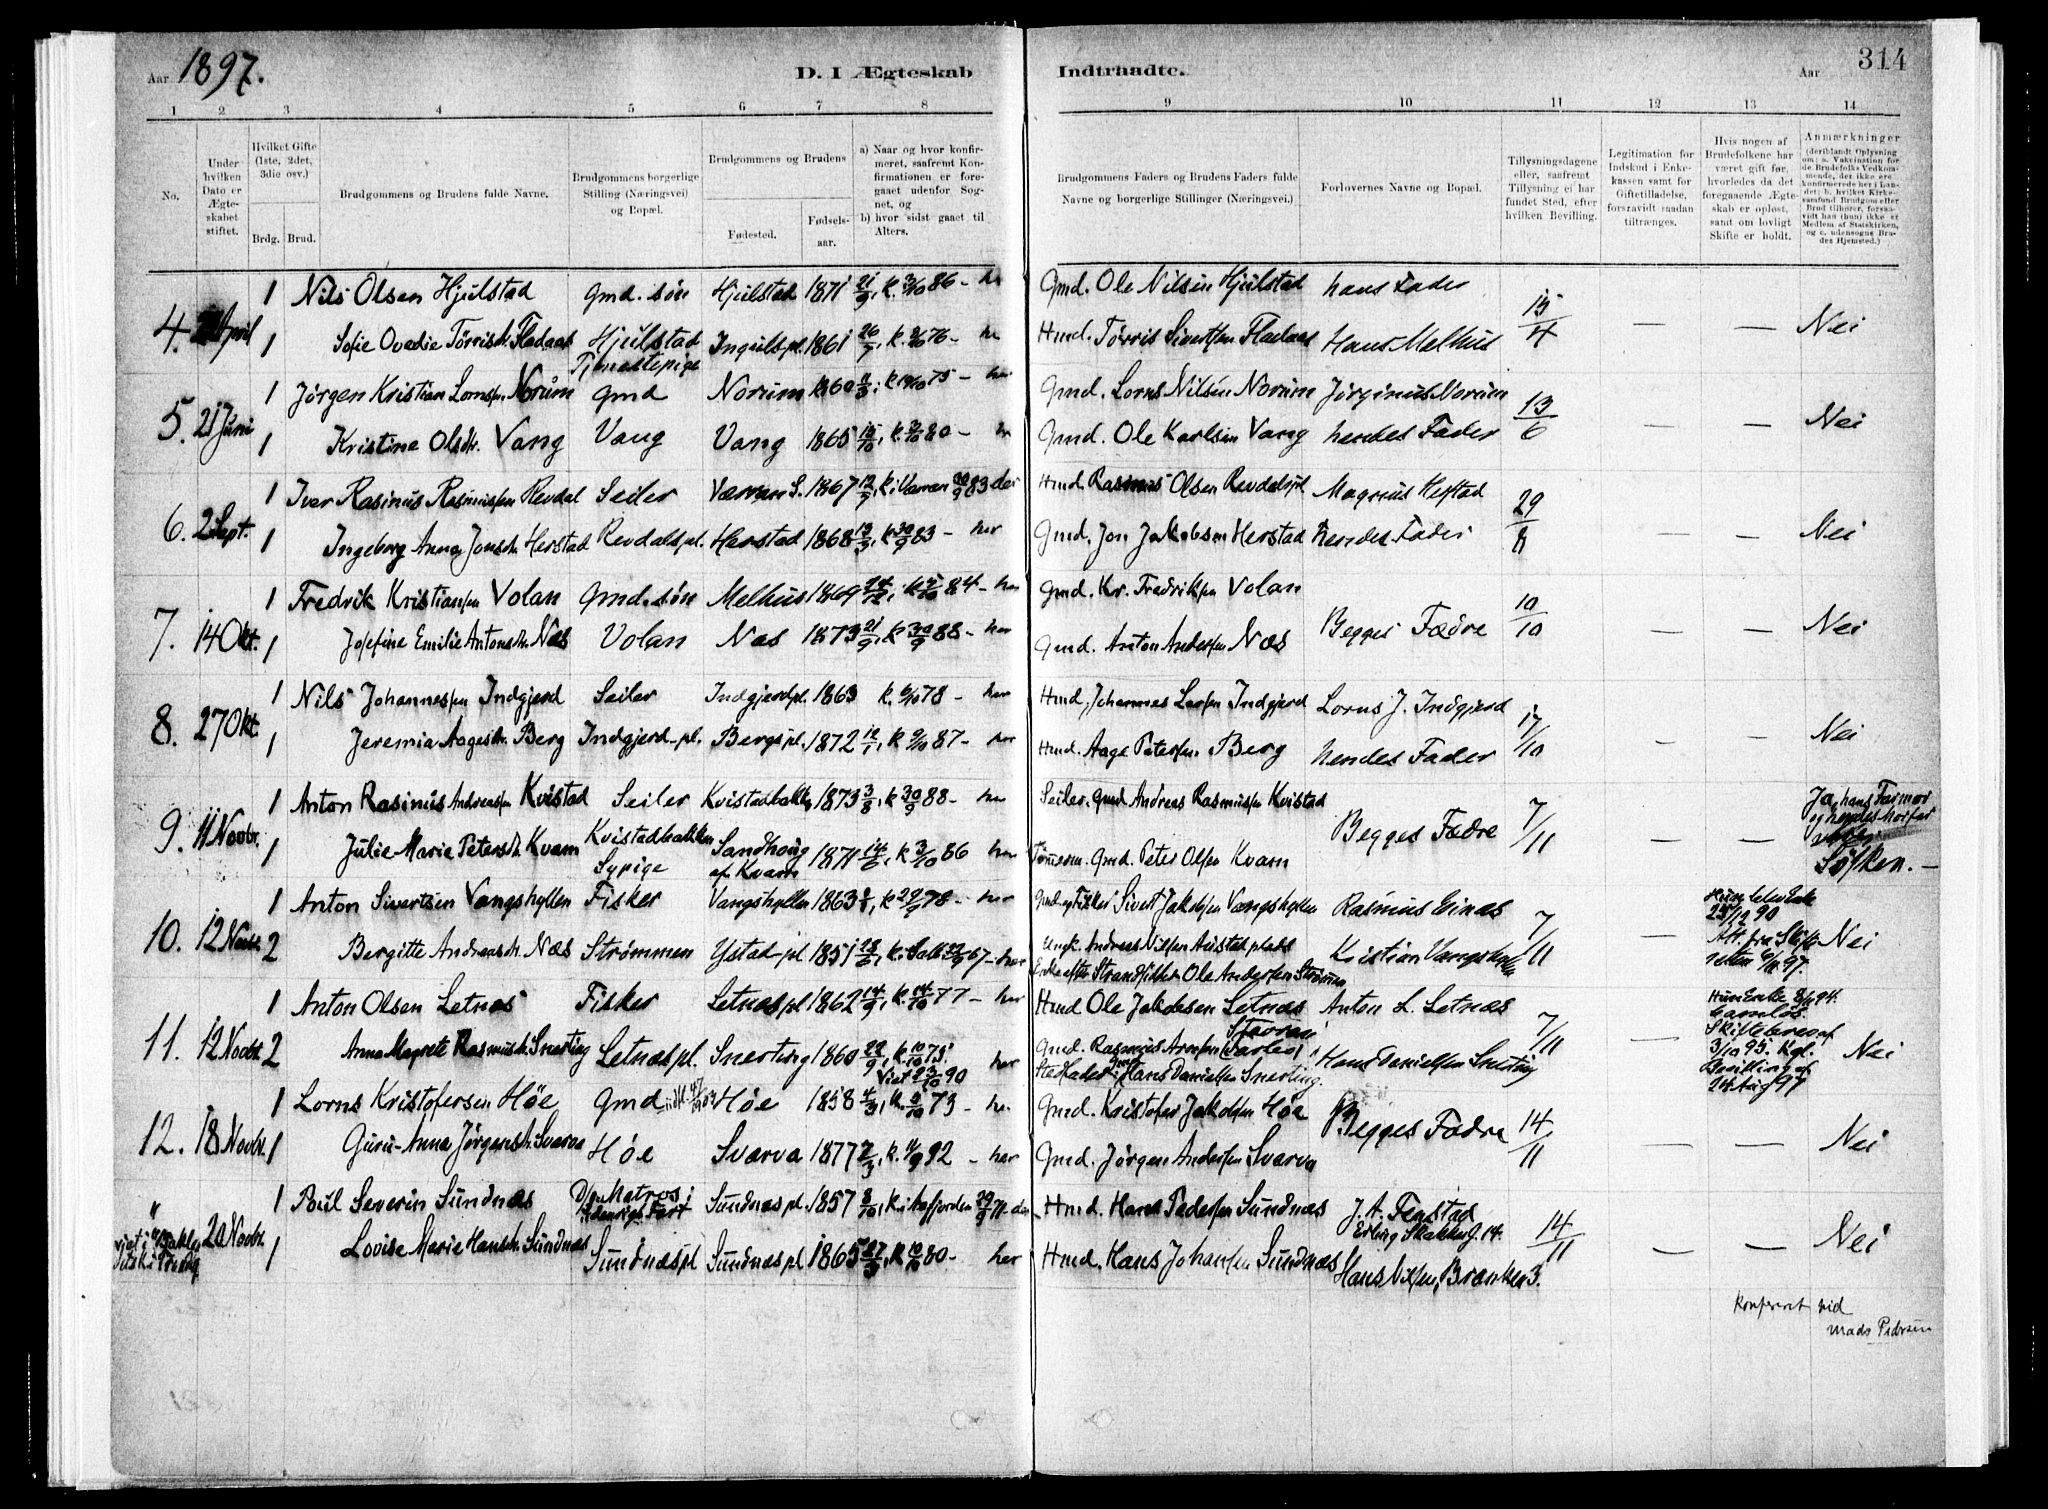 Aar 1897.
D. I Ægteskab
Indtraadte.
Aar
314
1 2 3 4 5 6 7 8
9 10 11 12 13 14
No.
Under hvilken Dato er Ægteskabet stiftet.
Hvilket Gifte (1ste, 2det, 3die osv.)
Brdg. Brud.
Brudgommens og Brudens fulde Navne.
Brudgommens borgerlige Stilling (Næringsvei) og Bopæl.
Brudgommens og Brudens
Fødested.
Fødselsaar.
a) Naar og hvor konfirmeret, saafremt Konfirmationen er foregaaet udenfor Sognet, og
b) hvor sidst gaaet til Alters.
Brudgommens Faders og Brudens Faders fulde Navne og borgerlige Stillinger (Næringsvei.)
Forlovernes Navne og Bopæl.
Tillysningsdagene eller, saafremt Tillysning ei har fundet Sted, efter hvilken Bevilling.
Legitimation for Indskud i Enkekassen samt for Giftetilladelse, forsaavidt saadan tiltrænges.
Hvis nogen af Brudefolkene har været gift før, hvorledes da det foregaaende Ægteskab er opløst, samt om lovligt Skifte er holdt.
Anmærkninger (deriblandt Oplysning om: a. Vakcination for de Brudefolks Vedkommende, der ikke ere konfirmerede her i Landet; b. hvilket Kirkesamfund Brudgom eller Brud tilhører, forsaavidt han (hun) ikke er Medlem af Statskirken, og c. udensogns Brudes Hjemsted.)
1 Nils Olsen Hjulstad gmd. søn Hjulstad 1871 21/9, k. 3/10 86 - her Gmd. Ole Nilsen Hjulstad hans Fader
4. April 1 Sofie Ovedie Tørrisdr. Fladaas Hjulstad Tjenestepige 1861 26/7, k. 76 - her Hmd. Tørris Sivertsen Fladaas Hans Melhus 15/4 — — Nei
1 Jørgen Kristian Lornsen Norum gmd Norum 1860 75 - her Gmd. Lorns Nilsen Norum Jørginus Norum
5. 21 Juni 1 Kristine Olsdr. Vang Vang Vang 1865 15/10, k. 80 - her Gmd. Ole Karlsen Vang hendes Fader 13/6 — — Nei
1 Iver Rasmus Rasmussen Revdal Seiler Værran S. 1867 12/7, k. i Værran 30/9 83 der Hmd. Rasmus Olsen Revdalspl Magnus Hestad
6. 2 Sept. 1 Ingeborg Anna Jonsdr. Herstad Revdalspl. Herstad 1868 13/3, k 30/9 83 - her Gmd. Jon Jakobsen Herstad hendes Fader 29/8 — — Nei
1 Fredrik Kristiansen Volan Gmd. søn Melhus 1869 24/12, k 5/10 84 - her Gmd. Kr. Fredriksen Volan
7. 14 Okt. 1 Josefine Emilie Antonsdr. Næs Volan Næs 1873 21/9, k 30/9 88 - her Gmd. Anton Andersen Næs Begges Fædre 10/10 — — Nei
1 Nils Johannessen Indgjerd Seiler Indgjerdpl. 1863 k. 6/10 78 - her Hmd. Johannes Larsen Indgjerd Lorns J. Indgjerd
8. 27 Okt. 1 Jeremia Aagesdr. Berg Indgjerd-pl. Bergspl. 1872 12/1, k 9/10 87 - her Hmd. Aage Petersen Berg hendes Fader 17/10 — — Nei
1 Anton Rasmus Andreassen Kvistad Seiler Kvistadbakken 1873 3/8, k 30/9 88 - her Seiler. gmd Andreas Rasmussen Kvistad
9. 11 Novbr. 1 Julie Marie Petersdr. Kvam Kvistadbakken Sypige Sandhoug af Kvam 1871 14/6, k 3/10 86 her Tømrerm. Gmd. Peter Olsen Kvam Begges Fædre 7/11 — — Ja, hans Farmor og hendes Morfar vare Søsken. —
1 Anton Sivertsen Vangshyllen Fisker Vangshyllen 1863, k 29/9 78 - her Gmd og Fisker Sivert Jakobsen Vangshyllen Rasmus Einæs
10. 12 Novbr. 2 Bergitte Andreasdr. Næs Strømmen Ystad-pl 1851 67 - her Ungk. Andreas Nilsen Austad plads
Enke efter Strandsidder Ole Andersen Strømmen Kristian Vangshyllen 7/11 — 25/12 90 Att. fra Skifteretten 97. Nei
1 Anton Olsen Letnæs Fisker Letnæspl 1862 14/9, k. 14/10 77 - her Hmd Ole Jakobsen Letnæs Anton L. Letnæs
11. 12 Novbr 2 Anna Magrete Rasmusdr. Snerting Letnæspl. Snerting 1860 29/9, k. 10/10 75. Viet 23/10 90 her Gmd. Rasmus Arntsen
Stedfader gmd Hans Danielsen Snerting. Hans Danielsen Snerting 7/11 Hun Enke 94. barnløs. Skiftebrev af 3/10 95. Kgl. Bevilling af 24 Aug 97 Nei
1 Lorns Kristofersen Høe Gmd Høe 1858 4/3, k. 5/10 73 - her Gmd. Kristofer Jakobsen Høe
12. 18 Novbr. 1 Guru-Anna Jørgensdr. Svarva Høe Svarva 1877 2/3, k. 4/9 92 - her Gmd. Jørgen Andersen Svarva Begges Fædre 14/11 — — Nei
1 Poul Severin Sundnæs Matros i Udenrigs Fart Sundnæspl. 1857 3/10, k. i Aafjorden 29/9 71 der Hmd. Hans Pedersen Sundnæs J. A. Fenstad Erling Skakkesg. 14.
" 20 Novbr. 1 Lovise Marie Hansdr. Sundnæs Sundnæspl Sundnæspl 1865 27/3, k 10/10 80 - her Hmd. Hans Johansen Sundnæs Hans Nilsen, Brænken 3. 14/11 — — Nei
Konfereret ved
Mads Pedersen